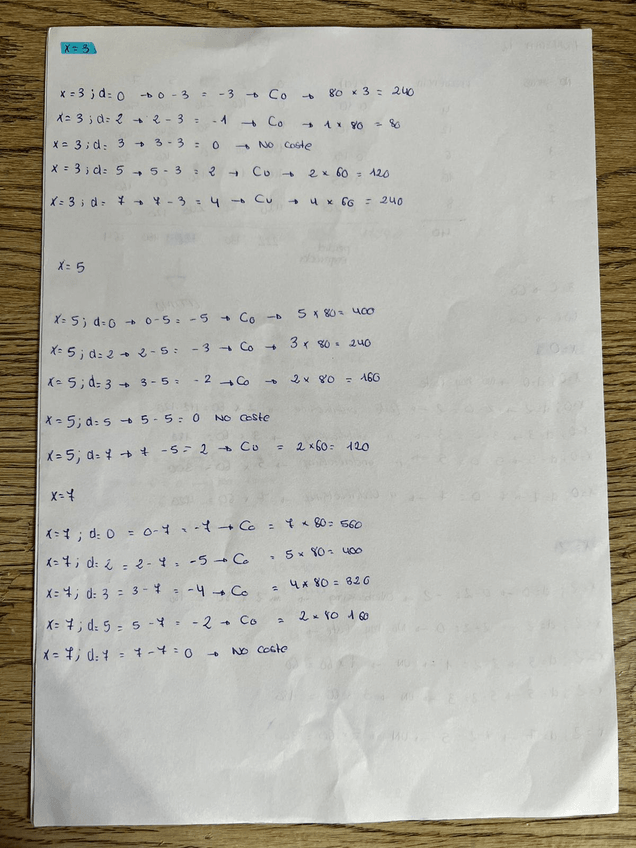 x=3
x=3; d=0 → 0-3 = -3 → Co → 80 x 3 = 240
x=3; d=2 → 2-3 = -1 → Co → 1 x 80 = 80
x=3; d= 3 → 3-3 = 0 → No coste
x=3; d= 5 → 5-3 = 2 → Cu → 2 x 60 = 120
x=3; d= 7 → 7-3 = 4 → Cu → 4 x 60 = 240
x=5
x=5; d=0 → 0-5= -5 → Co → 5 x 80= 400
x=5; d=2 → 2-5= -3 → Co → 3 x 80= 240
x=5; d=3 → 3-5= -2 → Co → 2 x 80 = 160
x=5; d=5 → 5-5=0 No coste
x=5; d=7 → 7 -5= 2 → Cu = 2x60= 120
x=7
x=7; d=0 = 0-7 = -7 → Co = 7 x 80= 560
x=7; d=2 = 2-7 = -5 → Co = 5 x 80= 400
x=7; d=3 = 3-7 = -4 → Co = 4 x 80= 320
x=7; d=5 = 5-7 = -2 → Co = 2 x 80 160
x=7; d=7 = 7-7=0 → No coste